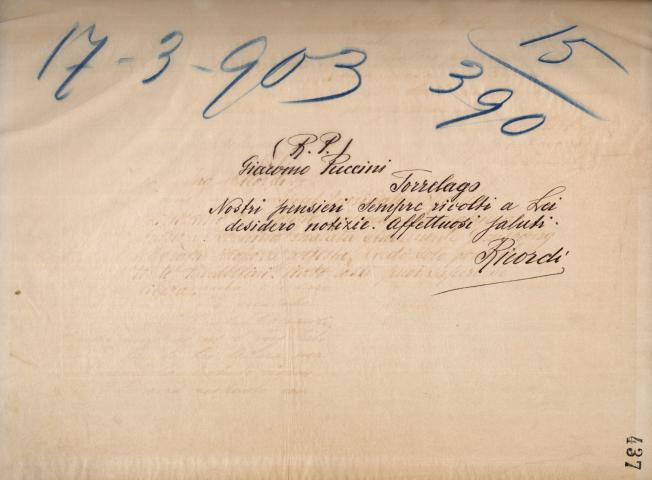 17-3-903
15
390
(R.P.)
Giacomo Puccini
Torrelago
Nostri pensieri sempre rivolti a Lei
desidero notizie. Affettuosi saluti.
Ricordi
437